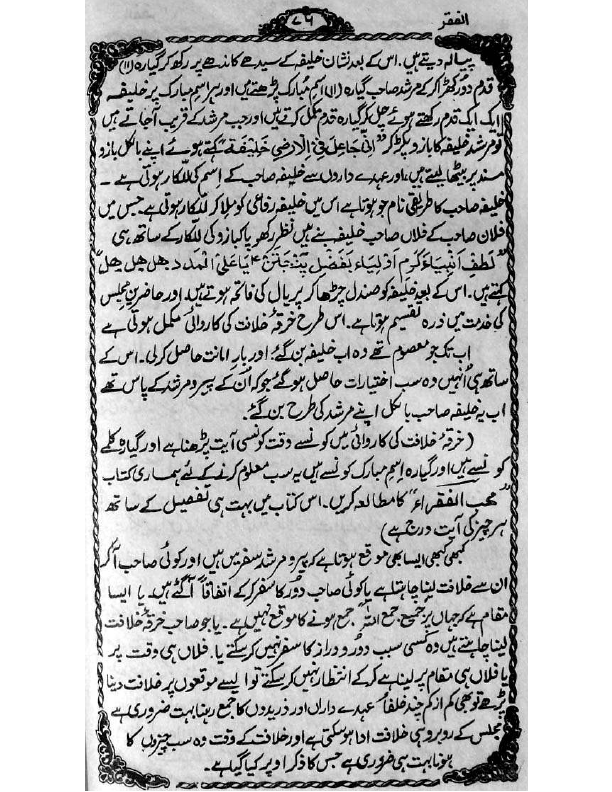 الفقر
۷۶
پیالہ دیتے ہیں. اس کے بعد نشان خلیفہ کے سیدھے کاندھے پر رکھ کر گیارہ (۱۱)
قدم دور کھڑا کر کے مرشد صاحب گیارہ (۱۱) اسم مبارک پڑھتے ہیں اور ہر اسم مبارک پر خلیفہ
ایک ایک قدم رکھتے ہوئے چل کر گیارہ قدم مکمل کرتے ہیں اور جب مرشد کے قریب آجاتے ہیں
تو مرشد خلیفہ کا بازو پکڑ کر "اِنِّیْ جَاعِلٌ فِی الْاَرْضِ خَلِیْفَةً" کہتے ہوئے اپنے بالکل بازو
مسند پر بیٹھا لیتے ہیں، اور عہدے داروں سے خلیفہ صاحب کے اسم کی للکار ہوتی ہے۔
خلیفہ صاحب کا طریقی نام جو ہوتا ہے اس میں خلیفہ رفاعی کو ملا کر للکار ہوتی ہے جس میں
فلاں صاحب کے فلاں صاحب خلیفہ بنے ہیں نظر رکھو پاکبازو کی للکار کے ساتھ ہی
"لطف انبیاء کرم اولیاء بفضل پنجتن یا علی المدد هل هل هل"
کہتے ہیں. اس کے بعد خلیفہ کو صندل چڑھا کر پریال کی فاتحہ ہوتے ہیں. اور حاضرین مجلس
کی خدمت میں ذرہ تقسیم ہوتا ہے. اس طرح خرقۂ خلافت کی کاروائی مکمل ہوتی ہے
اب تک جو معصوم تھے وہ اب خلیفہ بن گئے اور بارِ امانت حاصل کر لی. اس کے
ساتھ ہی اُنہیں وہ سب اختیارات حاصل ہو گئے جو کہ اُن کے پیر و مرشد کے پاس تھے
اب یہ خلیفہ صاحب بالکل اپنے مرشد کی طرح بن گئے.
(خرقۂ خلافت کی کاروائی میں کونسے وقت کونسی آیت پڑھنا ہے اور گیارہ کلمے
کونسے ہیں اور گیارہ اسم مبارک کونسے ہیں یہ سب معلوم کرنے کے لئے ہماری کتاب
"محب الفقراء" کا مطالعہ کریں. اس کتاب میں بہت ہی تفصیل کے ساتھ
ہر چیز کی آیت درج ہے)
کبھی کبھی ایسا بھی موقع ہوتا ہے کہ پیر و مرشد سفر میں ہیں اور کوئی صاحب آ کر
ان سے خلافت لینا چاہتا ہے یا کوئی صاحب دور کا سفر کر کے اتفاقاً آگئے ہیں. یا ایسا
مقام ہے کہ جہاں پر جمیع جمع اللہ جمع ہونے کا موقع نہیں ہے. یا جو صاحب خرقۂ خلافت
لینا چاہتے ہیں وہ کسی سبب دور و دراز کا سفر نہیں کر سکتے یا. فلاں ہی وقت پر
یا فلاں ہی مقام پر لینا ہے کر کے انتظار نہیں کر سکتے تو ایسے موقعوں پر خلافت دینا
پڑھے تو بھی کم از کم چند خلفاء عہدے داراں اور ذریدوں کا جمع رہنا بہت ضروری ہے
مجلس کے روبرو ہی خلافت ادا ہو سکتی ہے اور خلافت کے وقت وہ سب چیزوں کا
ہونا بہت ہی ضروری ہے جس کا ذکر اوپر کیا گیا ہے.